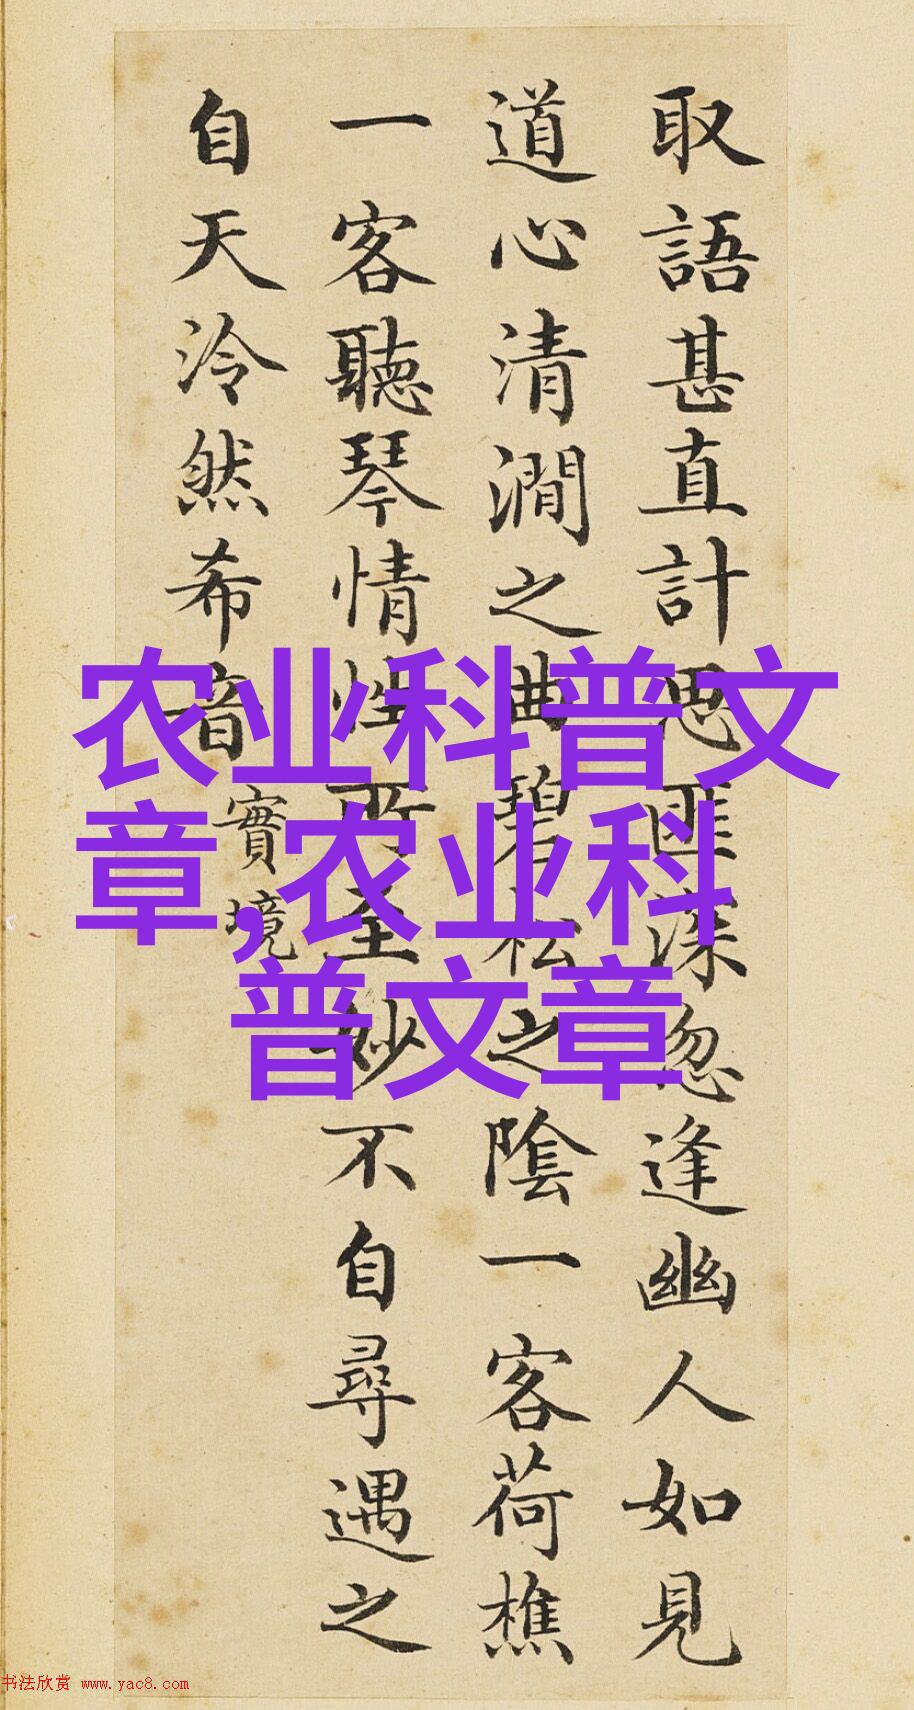 取語甚直計思匪深忽逢幽人如見
道心清澗之曲碧松之陰一客荷樵
一客聽琴情性所至妙不自尋遇之
自天泠然希音
實境
农业科普文
章,农业科
普文章
书法欣赏 www.yac8.com